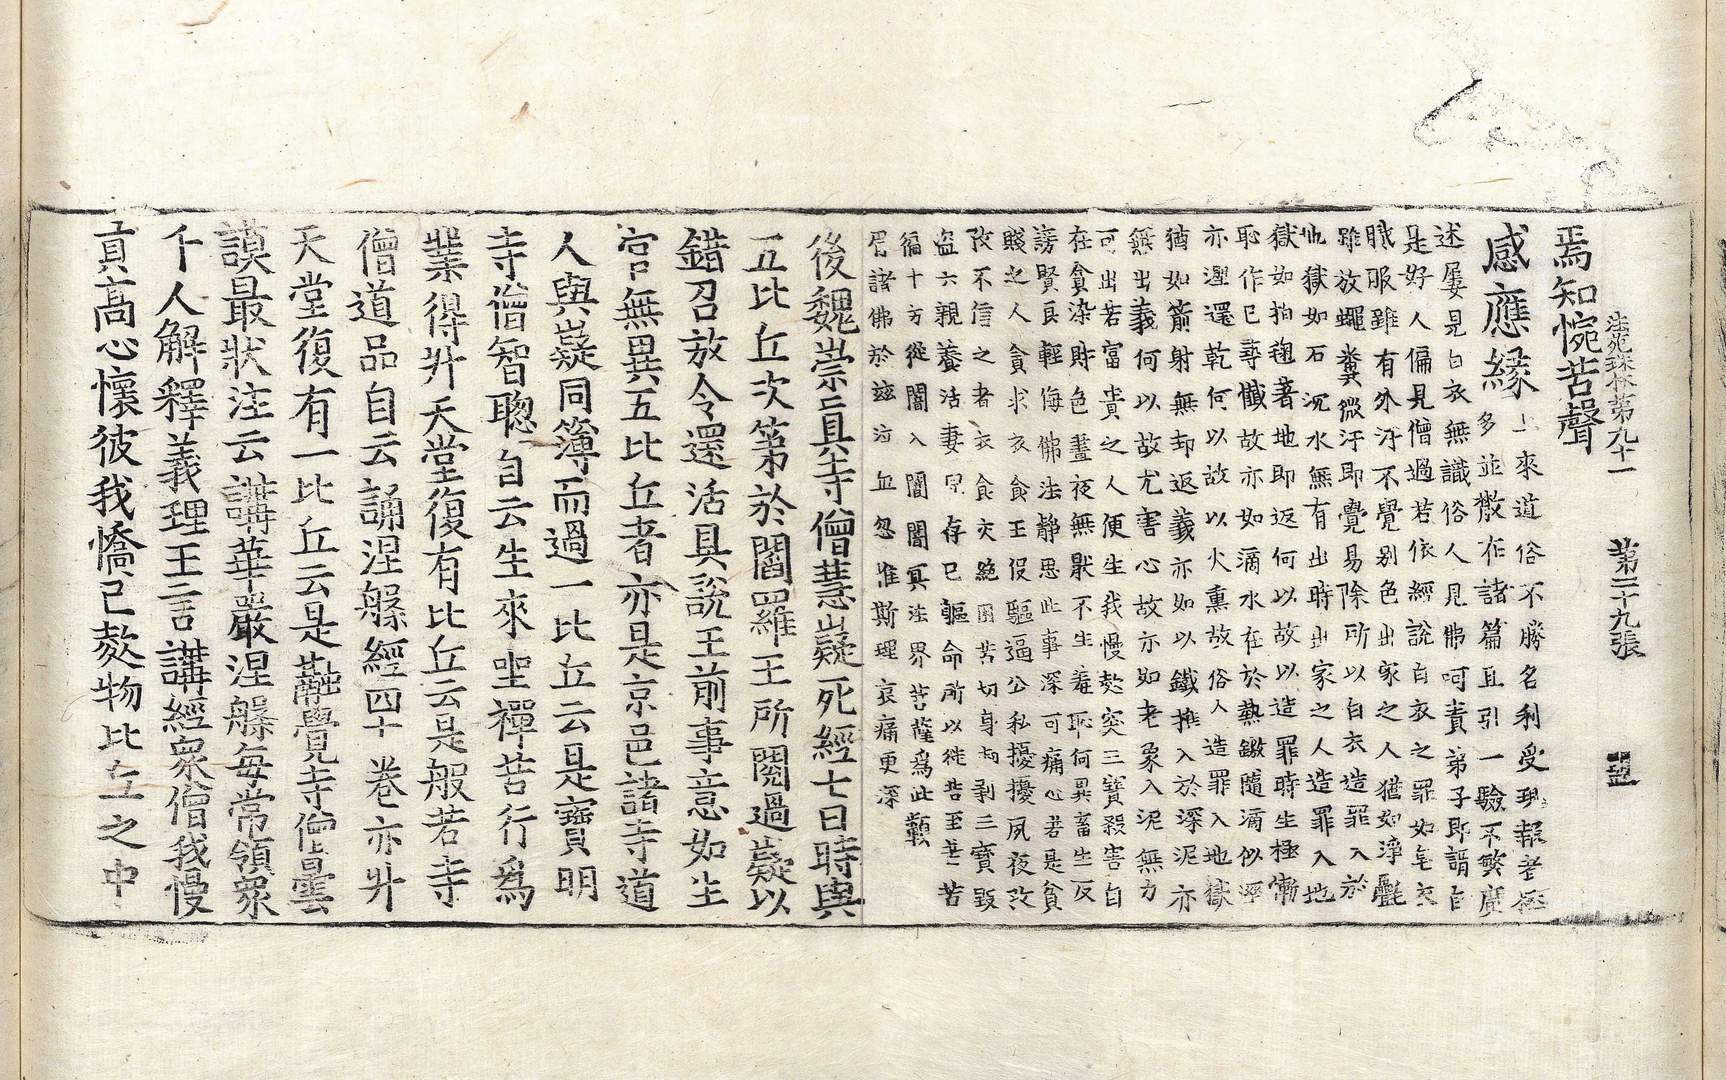 法苑珠林第九十一 第二十九張
焉知惋苦聲
感應縁 上來道俗不勝名利受現報者極
多並散在諸篇且引一驗不繁廣
述屢見白衣無識俗人見佛呵責弟子即謂自
是好人偏見僧過若依經說白衣之罪如皂衣
膩服雖有外汙不覺别色出家之人猶如淨氎
雖放蠅糞微汙即覺易除所以白衣造罪入於
地獄如石沉水無有出時出家之人造罪入地
獄如拍毱著地即返何以故以造罪時生極慚
恥作已尋懺故亦如滴水在於熱鏉隨滴似溼
亦溼還乾何以故以火熏故俗人造罪入地獄
猶如箭射無却返義亦如以鐵推入於深泥亦
無出義何以故尤害心故亦如老象入泥無力
可出若富貴之人便生我慢慠突三寶殺害自
在貪染財色晝夜無猒不生羞恥何異畜生反
謗賢良輕侮佛法靜思此事深可痛心若是貧
賤之人貪求衣食王役驅逼公私擾擾夙夜孜
孜不信之者衣食交絶困苦切身劫剥三寶毀
盗六親養活妻兒存已軀命所以徙苦至苦苦
徧十方從闇入闇闇冥法界菩薩爲此顰
眉諸佛於兹泣血忽惟斯理哀痛更深
後魏崇真寺僧慧嶷死經七日時與
五比丘次第於閻羅王所閱過嶷以
錯召放令還活具說王前事意如生
官無異五比丘者亦是京邑諸寺道
人與嶷同簿而過一比丘云是寶明
寺僧智聦自云生來坐禪苦行爲
業得升天堂復有比丘云是般若寺
僧道品自云誦涅槃經四十卷亦升
天堂復有一比丘云是融覺寺僧曇
謨最狀注云講華嚴涅槃每常領衆
千人解釋義理王言講經衆僧我慢
貢髙心懷彼我憍已慠物比丘之中